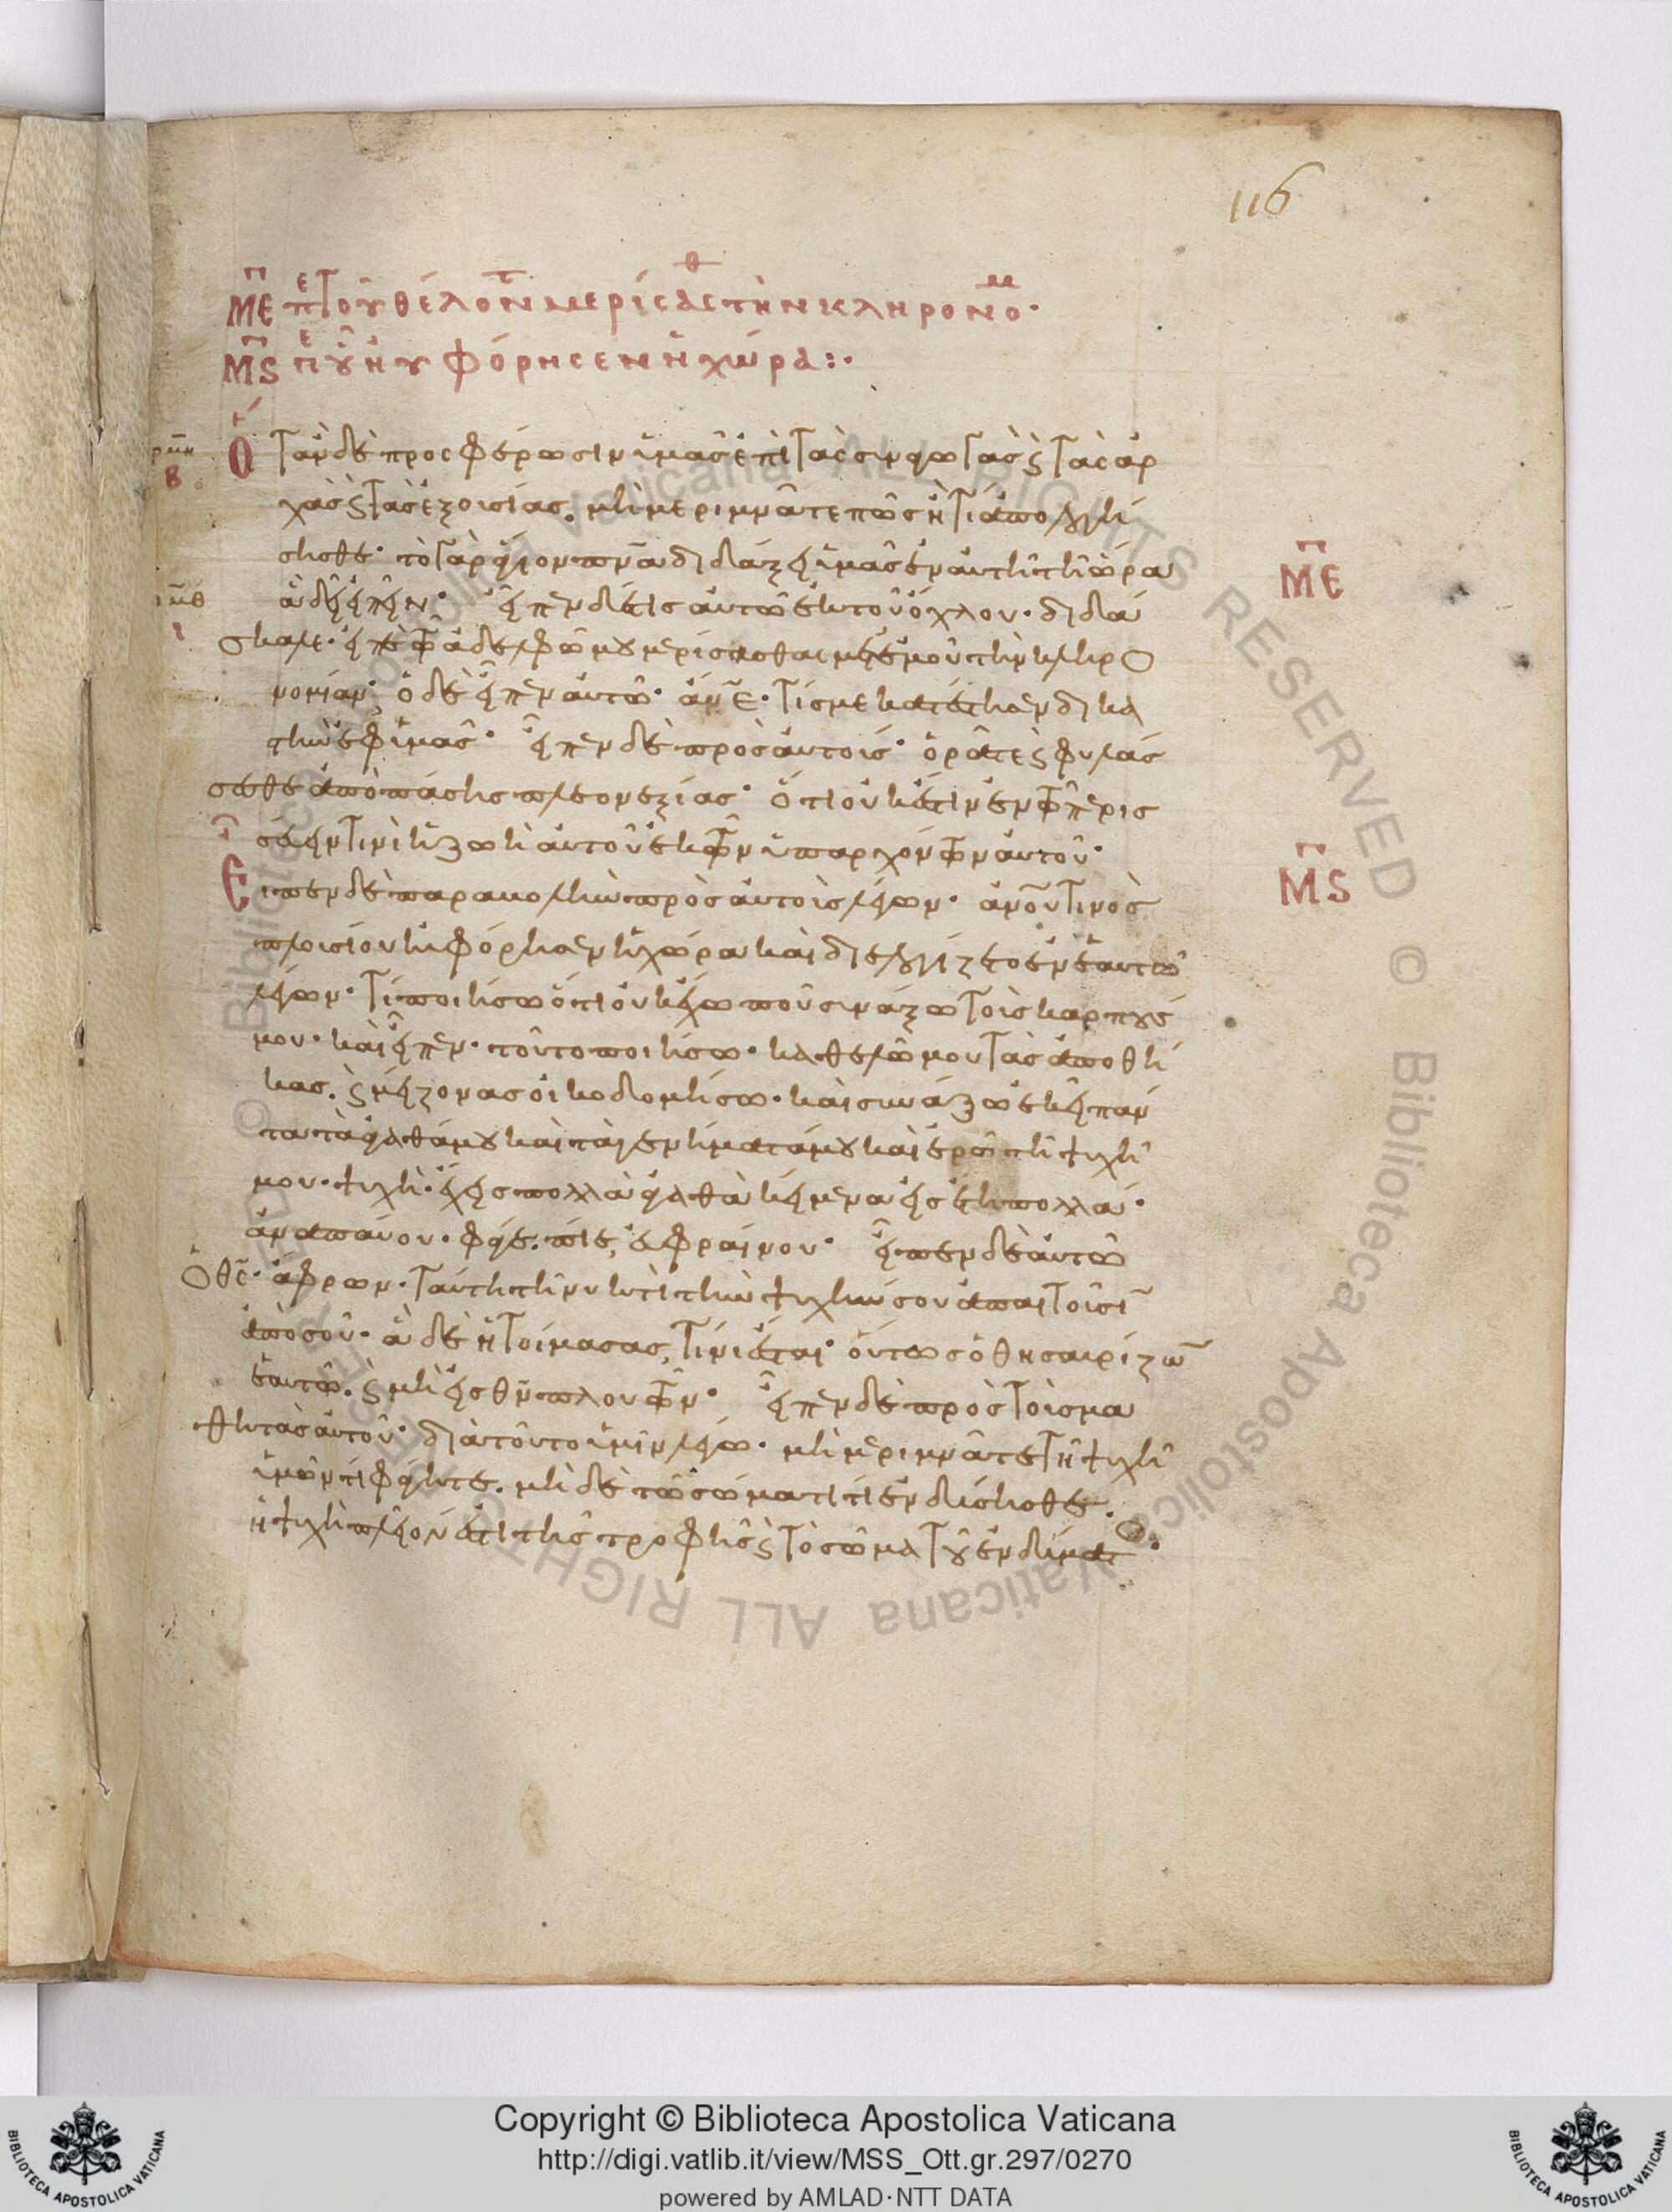 116
ΜΕ περὶ τοῦ θέλοντ μερίσασθ τὴν κληρονομ·
ΜϚ περὶ οὗ ηὐφόρησεν ἡ χώρα:·
Ὅταν δὲ προσφέρωσιν ὑμᾶς ἐπὶ τὰς συναγωγὰς ϗ τὰς ἀρ
χὰς ϗ τὰς ἐξουσίας. μὴ μεριμνᾶτε πῶς ἢ τί ἀπολογή
σησθε· τὸ γὰρ ἅγιον πνα διδάξει ὑμᾶς ἐν αὐτῆ τῆ ὥρα
ΜΕ
ἃ δεῖ εἰπεῖν· εἶπεν δέ τις αὐτῶ ἐκ τοῦ ὄχλου· διδά
σκαλε· εἰπὲ τῶ ἀδελφῶ μου μερίσασθαι μετ' ἐμοῦ τὴν κληρο
νομίαν· ὁ δὲ εἶπεν αὐτῶ· ἄνε· τίς με κατέστησεν δικα
στὴν ἐφ' ὑμᾶς· εἶπεν δὲ πρὸς αὐτούς· ὁρᾶτε ϗ φυλάσ
σεσθε ἀπὸ πάσης πλεονεξίας· ὅτι οὐκ ἐστιν ἐν τῶ περισ
σεύειν τινὶ ἡ ζωὴ αὐτοῦ ἐκ τῶν ὑπαρχόντων αὐτοῦ·
Εἶπεν δὲ παραβολὴν πρὸς αὐτοὺς λέγων· ἀνου τινὸς
ΜϚ
πλουσίου ηὐφόρησεν ἡ χώρα καὶ διελογίζετο ἐν ἑαυτῶ
λέγων· τί ποιήσω ὅτι οὐκ ἔχω ποῦ συνάξω τοὺς καρπούς
μου· καὶ εἶπεν· τοῦτο ποιήσω· καθελῶ μου τὰς ἀποθή
κας. ϗ μείζονας οἰκοδομήσω· καὶ συνάξω ἐκεῖ πάν
τα τὰ ἀγαθά μου καὶ τὰ γεννήματά μου καὶ ἐρῶ τῆ ψυχῆ
μου· ψυχή· ἔχεις πολλὰ ἀγαθὰ κείμενα εἰς ἔτη πολλά·
ἀναπαύου· φάγε. πίε, εὐφραίνου· εἶπεν δὲ αὐτῶ
ὁ θς· ἄφρων· ταύτη τῆ νυκτὶ τὴν ψυχήν σου ἀπαιτοῦσι
ἀπὸ σοῦ· ἃ δὲ ἡτοίμασας, τίνι ἔσται· οὕτως ὁ θησαυρίζων
ἑαυτῶ. ϗ μὴ εἰς θν πλουτῶν· εἶπεν δὲ πρὸς τοὺς μα
θητὰς αὐτοῦ· διὰ τοῦτο ὑμῖν λέγω· μὴ μεριμνᾶτε τῆ ψυχῆ
ὑμῶν τί φάγητε. μὴ δὲ τῶ σώματι τί ἐνδύσησθε.
ἡ ψυχὴ πλεῖόν ἐστι τῆς τροφῆς ϗ τὸ σῶμα τοῦ ἐνδύματος·
Copyright © Biblioteca Apostolica Vaticana
http://digi.vatlib.it/view/MSS_Ott.gr.297/0270
powered by AMLAD·NTT DATA
BIBLIOTECA APOSTOLICA VATICANA
BIBLIOTECA APOSTOLICA VATICANA
© Biblioteca Apostolica Vaticana ALL RIGHTS RESERVED